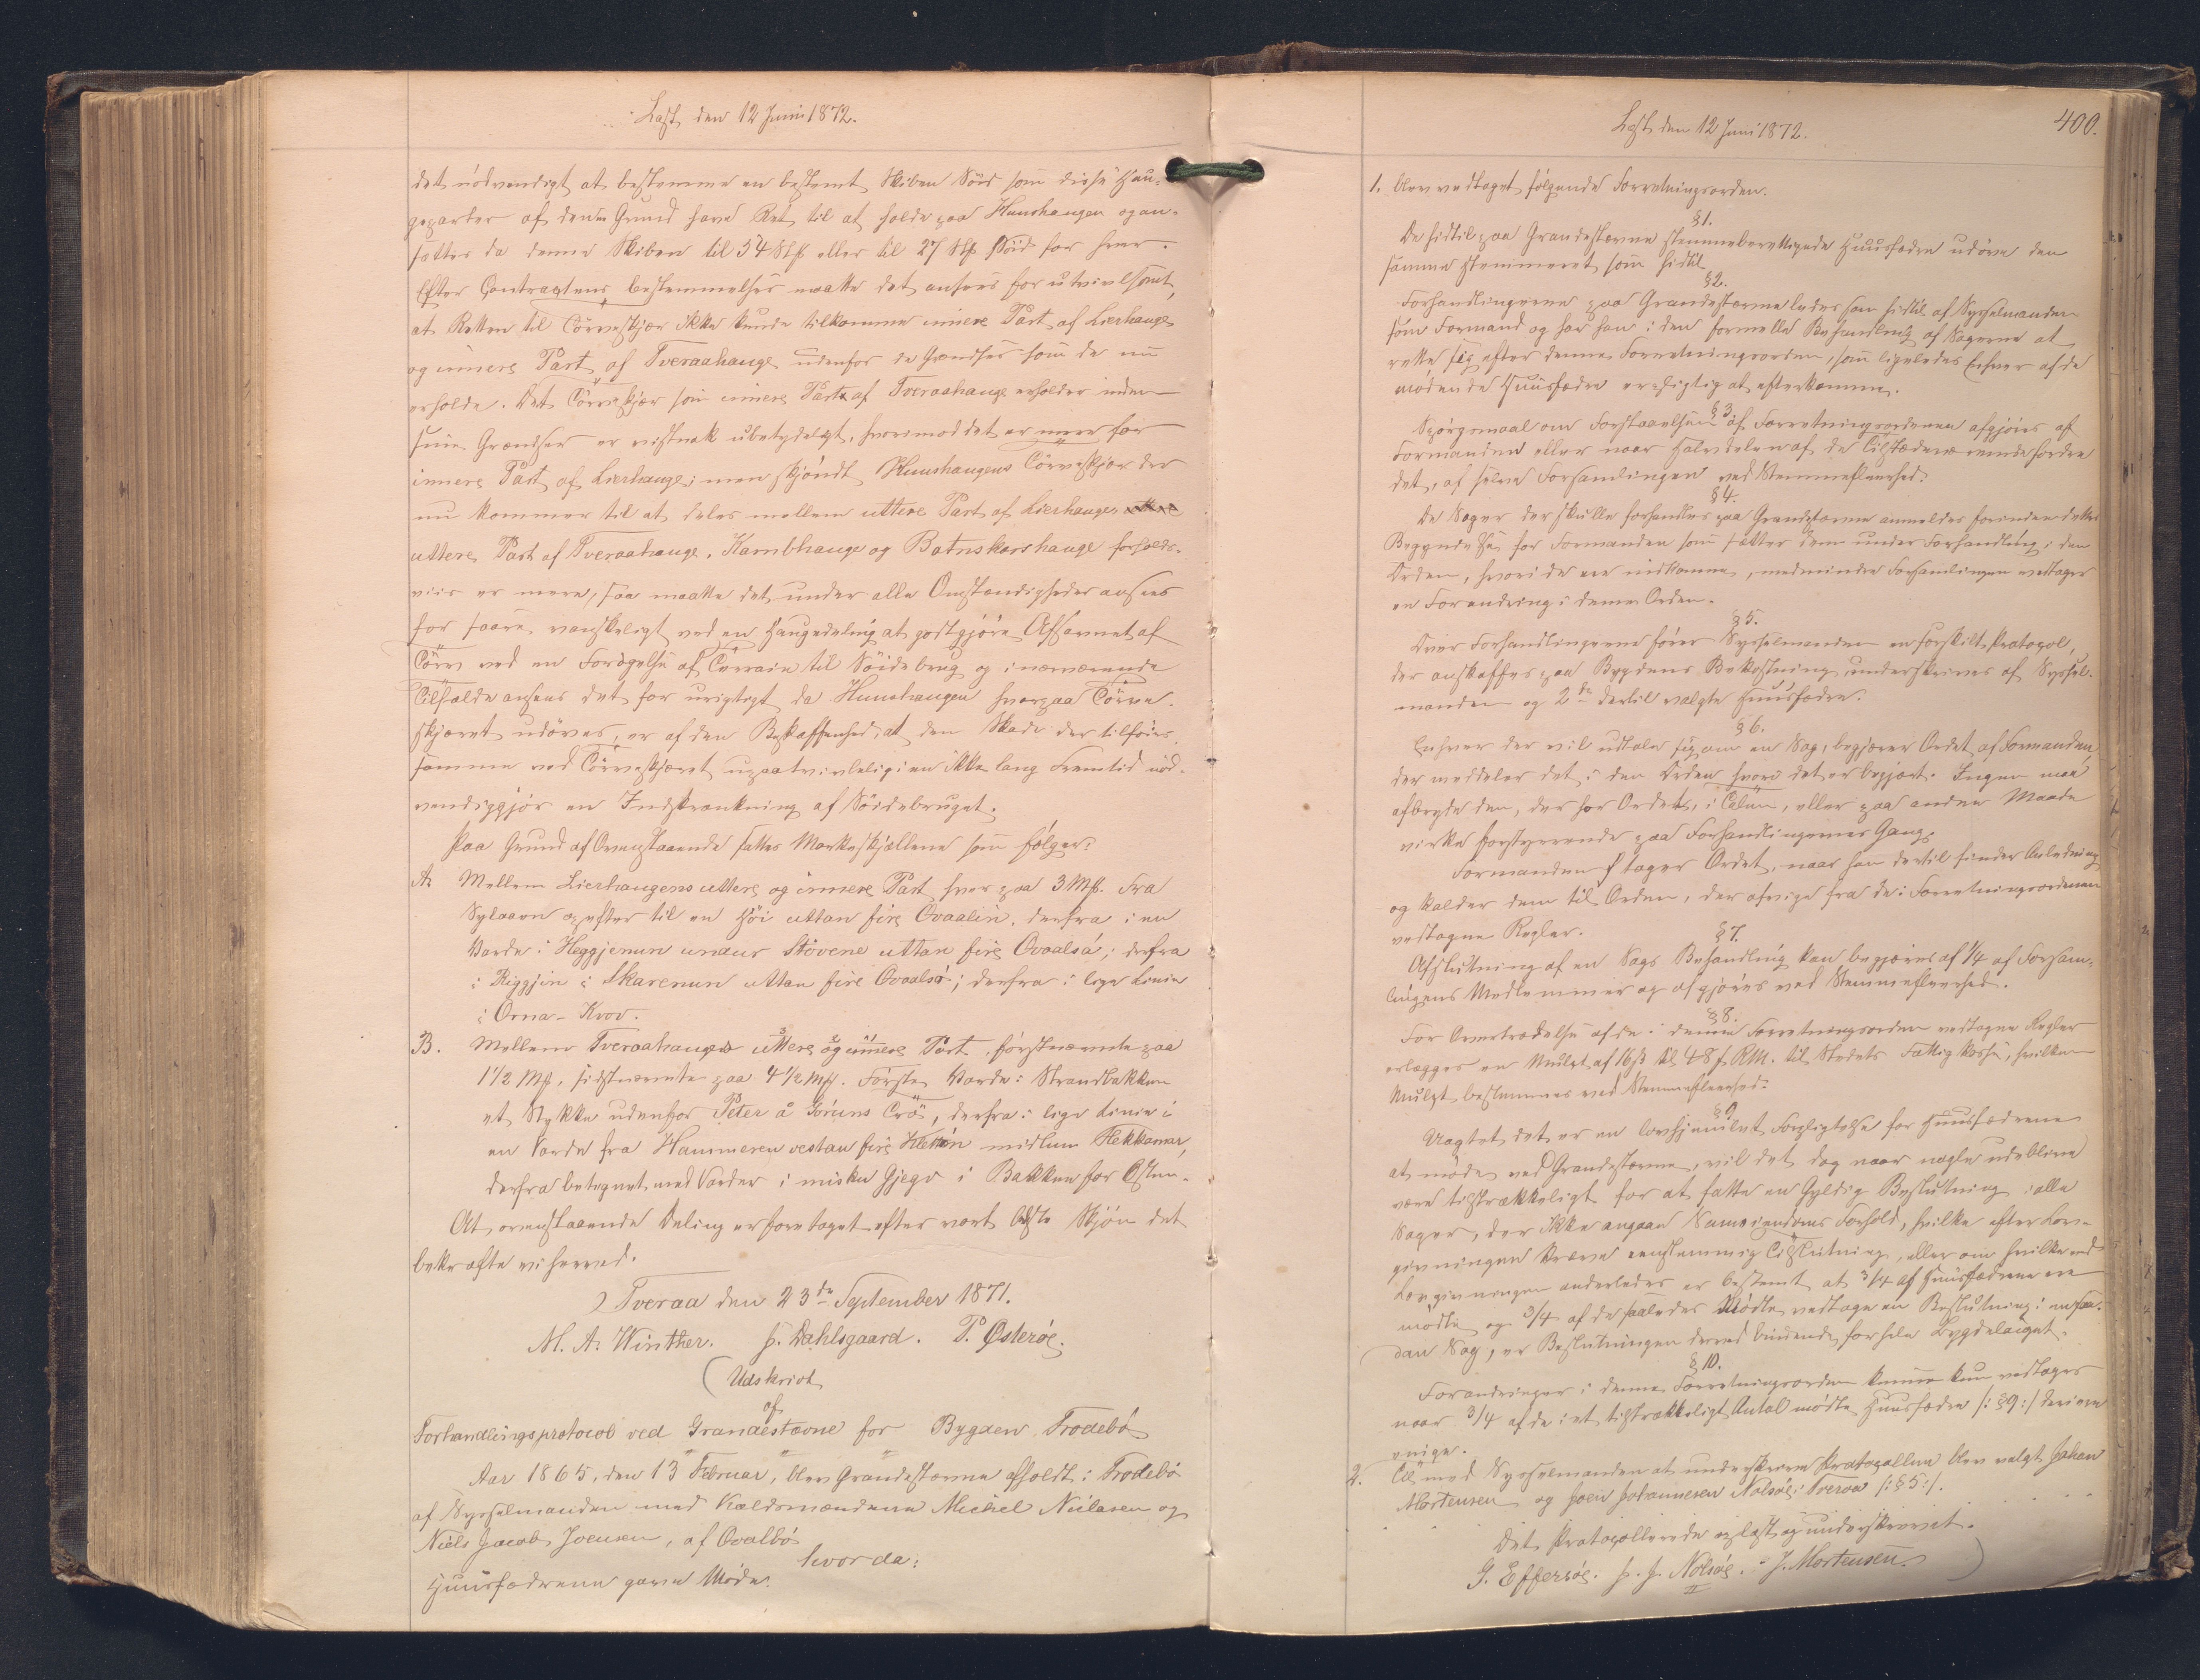 Læst den 12 Juni 1872.
det nödvendigt at bestemme en bestemt Skiben Söid som disse Hau-
geparter af denne Grund have Ret til at holde paa Huushaugen og an-
sattes da denne Skiben til 54 Stk eller til 27 Stk Söid for hver.
Efter Contractens bestemmelser maatte det ansees for utvivlsomt,
at Retten til Törveskjær ikke kunde tilkomme innere Part af Lierhauge
og innere Part af Tveraahauge udenfor de Grændser som de nu
erholde. Det Törveskjær som innere Part af Tveraahauge erholder inden
sine Grændser er vistnok ubetydeligt, hvorimod det er mere for
innere Part af Lierhauge; men skjöndt Huushaugens Törveskjær der
nu kommer til at deles mellem uttere Part af Lierhauge,
uttere Part af Tveraahauge, Kambhauge og Botnskarshauge forholds-
viis er mere, saa maatte det under alle Omstændigheder ansees
for saare vanskeligt ved en Haugedeling at godtgjöre Afsavnet af
Törv ved en Forögelse af Terrain til Söidebrug og i nærværende
Tilfælde ansees det for urigtigt da Huushaugen hvorpaa Törve-
skjæret udöves, er af den Beskaffenhed, at den Skade der tilföies
samme ved Törveskjæret upaatvivlelig i en ikke lang Fremtid nöd-
vendiggjör en Indskrænkning af Söidebruget.
Paa Grund af Ovenstaaende sattes Markeskjællene som fölger:
A. Mellem Lierhaugens uttere og innere Part hver paa 3 Mk. Fra
Sylaavn opefter til en Höi uttan firi Ovaalin, derfra i en
Varde i Heggjenun undur Stövene uttan firi Ovaalsá; derfra
i Riggjin i Skarenun uttan firi Ovaalsá; derfra i lige Linie
i Orna-Kvov.
B. Mellem Tveraahauges uttere og innere Part, förstnævnte paa
1 1/2 Mk, sidstnævnte paa 4 1/2 Mk. Förste Varde i Strandbakken
et Stykke udenfor Peter á Góruns Tró, derfra i lige Linie i
en Varde fra Hammeren vestan firi Kletten midlum Flekkamar,
derfra betegnet med Varder i misku Gjegv i Bakken for Østen.
At ovenstaaende Deling er foretaget efter vort bedste Skjön det
bekræfte vi herved.
Tveraa den 23de September 1871.
M. A. Winther. J. Dahlsgaard. P. Østerøe.
Udskrivt
af
Forhandlingsprotocol ved Grandestævne for Bygden Trodebö
Aar 1865, den 13 Februar, blev Grandestævne afholdt i Trodebö
af Sysselmanden med Vældsmændene Michel Nielasen og
Niels Jacob Joensen, af Ovalbö
hvor da:
Huusfædrene gave Möde.
Læst den 12 Juni 1872.
400.
1. blev vedtaget fölgende Forretningsorden.
§1.
De hidtil paa Grandestævne stemmeberettigede Huusfædre udöve den
samme Stemmeret som hidtil
§2.
Forhandlingerne paa Grandestævne ledes som hidtil af Sysselmanden
som Formand og har han i den formelle Behandling af Sagerne at
rette sig efter denne Forretningsorden, som ligeledes Enhver af de
mödende Huusfædre er pligtig at efterkomme.
§3.
Spörgsmaal om Forstaaelsen af Forretningsordenen afgjöres af
Formanden eller naar Halvdelen af de Tilstedeværende fordre
det, af selve Forsamlingen ved Stemmefleerhed.
§4.
De Sager der skulle forhandles paa Grandestævne anmeldes forinden dettes
Begyndelse for Formanden som sætter dem under Forhandling i den
Orden, hvori de ere indkomne, medmindre Forsamlingen vedtager
en Forandring i denne Orden.
§5.
Over Forhandlingerne förer Sysselmanden en særskilt Protocol,
der anskaffes paa Bygdens Bekostning, underskrives af Syssel-
manden og 2de dertil valgte Huusfædre.
§6.
Enhver der vil udtale sig om en Sag, begjærer Ordet af Formanden,
der meddeler det i den Orden hvori det er begjært. Ingen maa
afbryde den, der har Ordet, i Talen, eller paa anden Maade
virke forstyrrende paa Forhandlingernes Gang.
Formanden tager Ordet, naar han dertil finder Anledning
og kalder dem til Orden, der afvige fra de i Forretningsordenen
vedtagne Regler.
§7.
Afslutning af en Sags Behandling kan begjæres af 1/4 af Forsam-
lingens Medlemmer og afgjöres ved Stemmefleerhed.
§8.
For Overtrædelse af de i denne Forretningsorden vedtagne Regler
erlægges en Mulkt af 16 s til 48 s RM. til Stedets Fattigkasse, hvilken
Mulkt bestemmes ved Stemmefleerhed.
§9
Uagtet det er en lovhjemlet Forpligtelse for Huusfædrene
at möde ved Grandestævne, vil det dog naar nogle udeblive
være tilstrækkeligt for at fatte en gyldig Beslutning i alle
Sager, der ikke angaae Sameiendoms Forhold, hvilke efter Lov-
givningen kræve eenstemmig Tilslutning, eller om hvilke ved
Lovgivningen anderledes er bestemt at 3/4 af Huusfædrene ere
mödte og 3/4 af de saaledes Mödte vedtage en Beslutning i en saa-
dan Sag, er Beslutningen derved bindende for hele Bygdelauget.
§10.
Forandringer i denne Forretningsorden kunne kun vedtages
naar 3/4 af de i et tilstrækkeligt Antal mödte Huusfædre /: §9 :/ deri ere
enige.
2. Til med Sysselmanden at underskrive Protocollen blev valgt Johan
Mortensen og Joen Johannesen Nolsöe i Tveraa /: §5 :/.
Det Protocollerede oplæst og underskrevet.
G. Effersøe. J. J. Nolsøe. J. Mortensen.